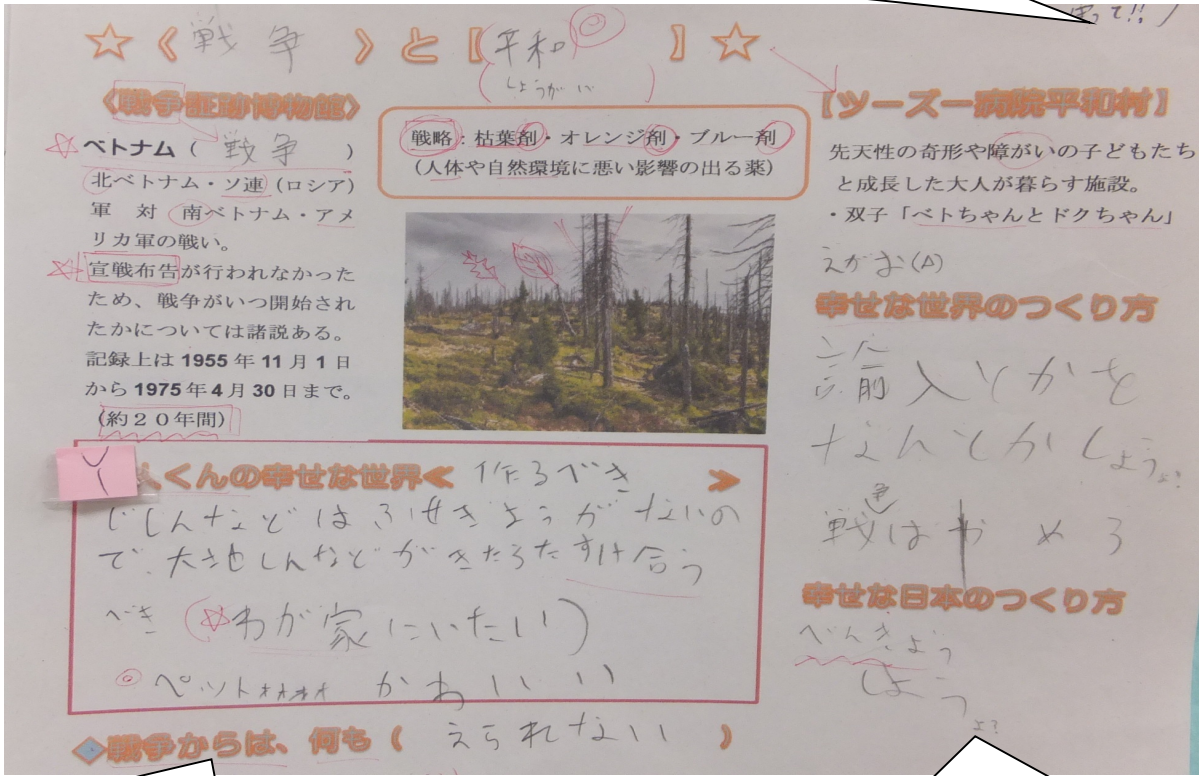 ☆《戦争》と【平和】☆
(しょうがい)
〈戦争証跡博物館〉
☆ベトナム(戦争)
北ベトナム・ソ連(ロシア)
軍 対 南ベトナム・アメ
リカ軍の戦い。
☆宣戦布告が行われなかった
ため、戦争がいつ開始され
たかについては諸説ある。
記録上は 1955 年 11 月 1 日
から 1975 年 4 月 30 日まで。
(約20年間)
戦略:枯葉剤・オレンジ剤・ブルー剤
(人体や自然環境に悪い影響の出る薬)
【ツーズー病院平和村】
先天性の奇形や障がいの子どもたち
と成長した大人が暮らす施設。
・双子「ベトちゃんとドクちゃん」
えがお(A)
幸せな世界のつくり方
入とかを
なんとかしようよ?
戦争はやめろ
幸せな日本のつくり方
べんきょう
しよう
よ?
Y
くんの幸せな世界≪作るべき≫
じしんなどはふせぎようがないの
で、大地しんなどがきたらたすけ合う
べき(☆わが家にいたい)
ペット かわいい
◆戦争からは、何も(えられない)